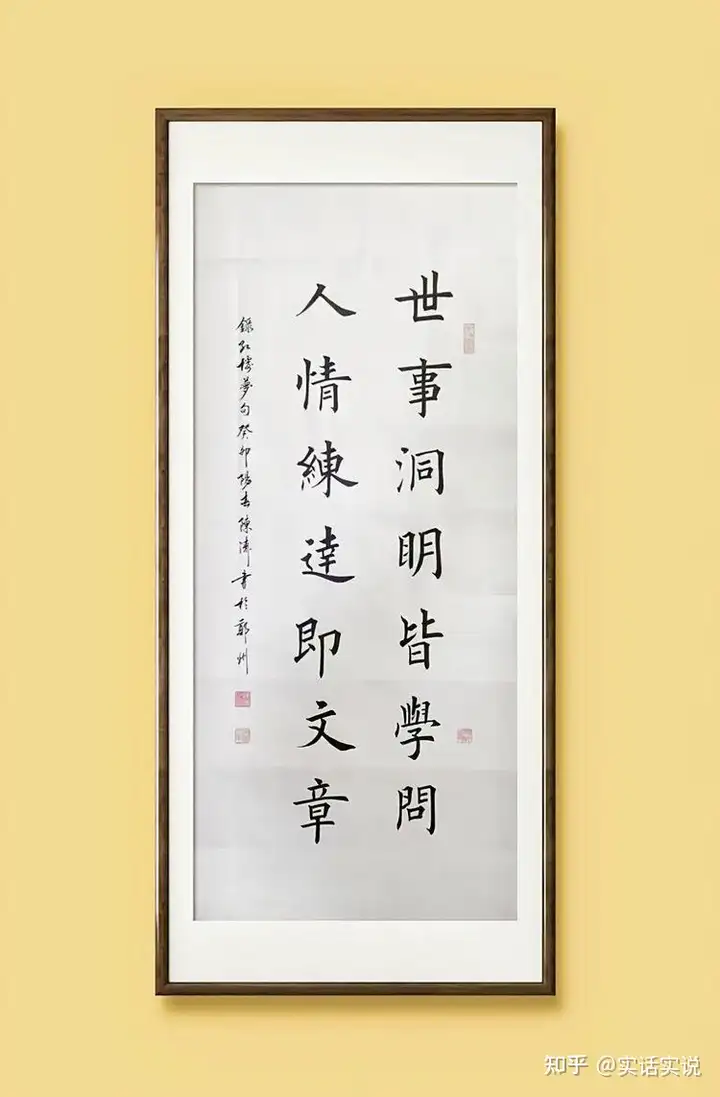 世事洞明皆學問
人情練達即文章
錄紅樓夢句癸卯陽春陳濤書於鄭州
知乎 @实话实说